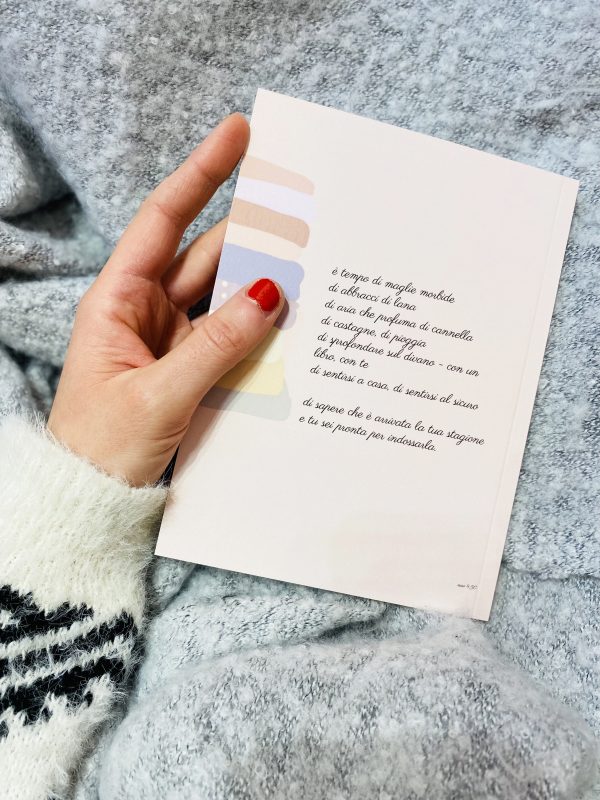 è tempo di maglie morbide
di abbracci di lana
di aria che profuma di cannella
di castagne, di pioggia
di sprofondare sul divano - con un
libro, con te
di sentirsi a casa, di sentirsi al sicuro
di sapere che è arrivata la tua stagione
e tu sei pronta per indossarla.